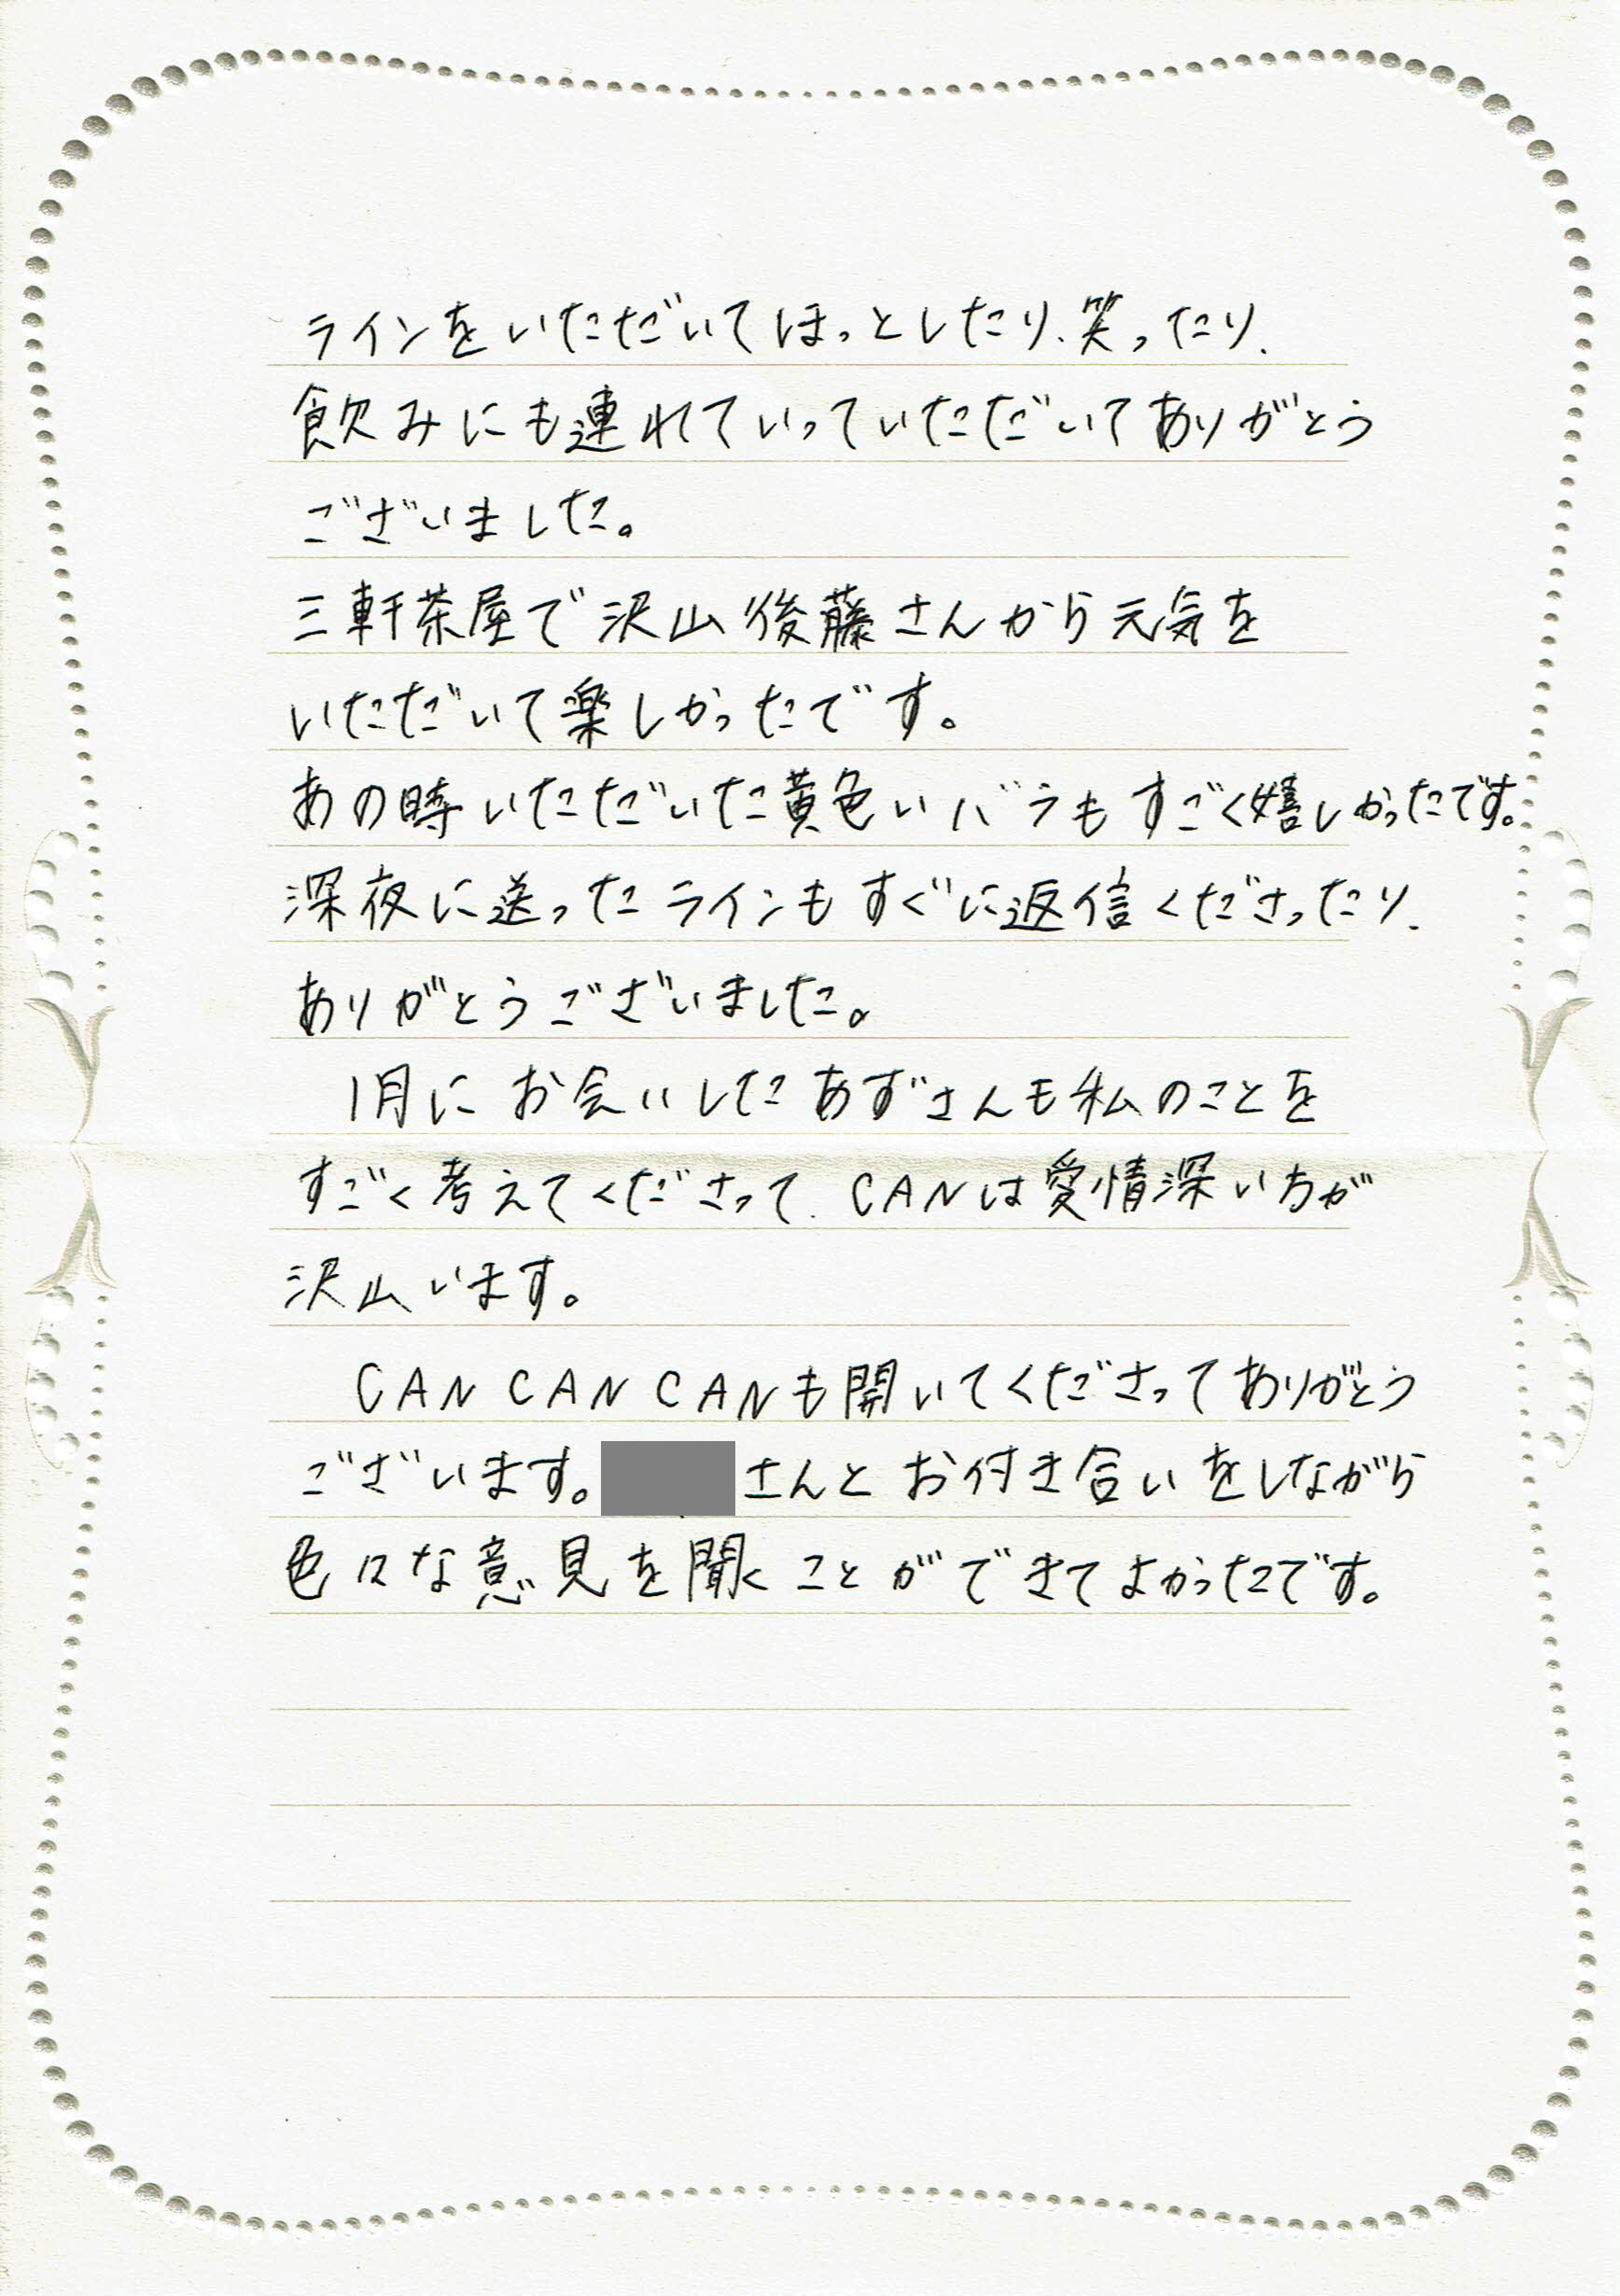 ラインをいただいてほっとしたり、笑ったり、
飲みにも連れていっていただいてありがとう
ございました。
三軒茶屋で沢山後藤さんから元気を
いただいて楽しかったです。
あの時いただいた黄色いバラもすごく嬉しかったです。
深夜に送ったラインもすぐに返信くださったり、
ありがとうございました。
1月にお会いしたあずさんも私のことを
すごく考えてくださって、CANは愛情深い方が
沢山います。
CAN CAN CANも開いてくださってありがとう
ございます。さんとお付き合いをしながら
色々な意見を聞くことができてよかったです。